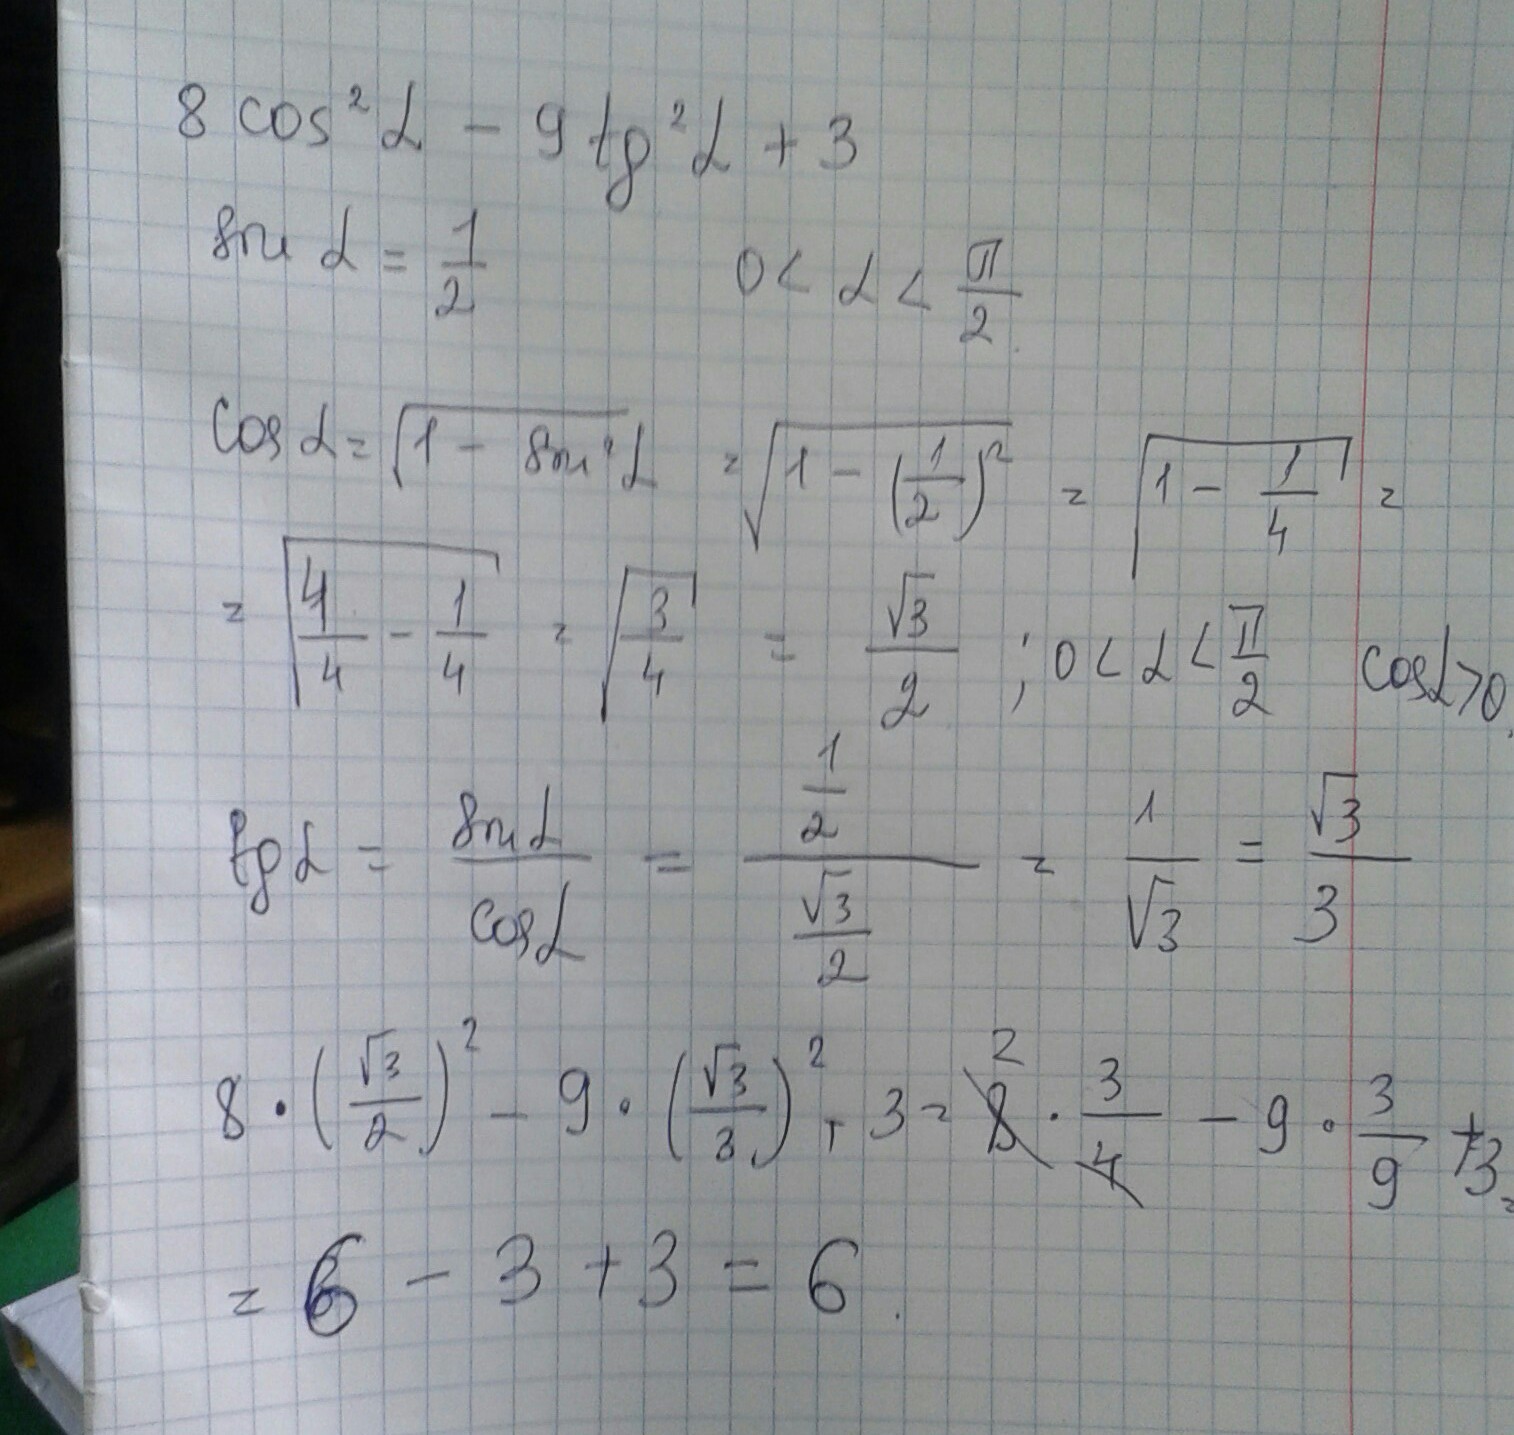 8 cos² α - 9 tg² α + 3
sin α = 1/2 0 < α < π/2
cos α = √(1 - sin² α) = √(1 - (1/2)²) = √(1 - 1/4) =
= √(4/4 - 1/4) = √(3/4) = √3/2 ; 0 < α < π/2 cos α > 0
tg α = sin α / cos α = (1/2)/(√3/2) = 1/√3 = √3/3
8 · (√3/2)² - 9 · (√3/3)² + 3 = 8 2 · 3/4 - 9 · 3/9 + 3 =
= 6 - 3 + 3 = 6.